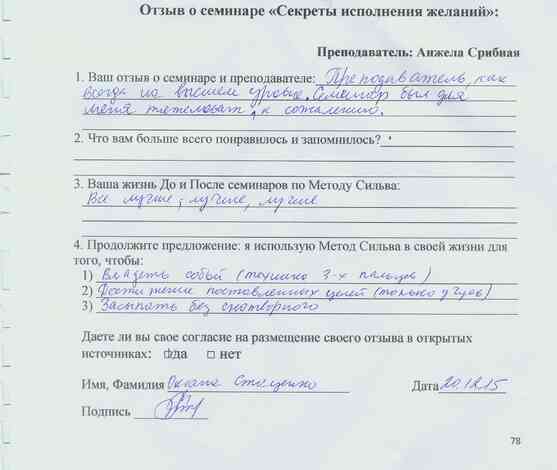 Отзыв о семинаре «Секреты исполнения желаний»:
Преподаватель: Анжела Срибная
1. Ваш отзыв о семинаре и преподавателе: Преподаватель, как
всегда на высшем уровне. Семинар был для
меня тяжеловат, к сожалению.
2. Что вам больше всего понравилось и запомнилось?
3. Ваша жизнь До и После семинаров по Методу Сильва:
Все лучше, лучше, лучше
4. Продолжите предложение: я использую Метод Сильва в своей жизни для
того, чтобы:
1) Владеть собой (техника 3-х пальцев)
2) Достижение поставленных целей (только учусь)
3) Засыпать без снотворного
Даете ли вы свое согласие на размещение своего отзыва в открытых
источниках: да нет
Имя, Фамилия Оксана
Дата 20.12.15
Подпись
78